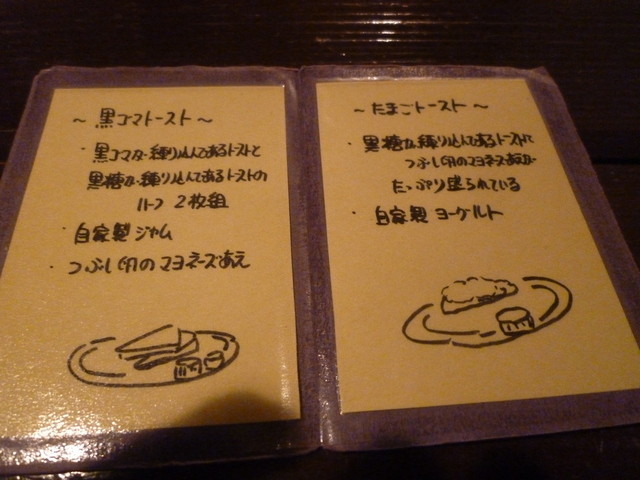 ～ 黒ゴマトースト ～
・黒ゴマが練り込んであるトーストと
黒糖が練り込んであるトーストの
ハーフ 2枚組
・自家製ジャム
・つぶし卵のマヨネーズあえ
～ たまごトースト ～
・黒糖が練り込んであるトーストに
つぶし卵のマヨネーズあえが
たっぷり盛られている
・自家製 ヨーグルト